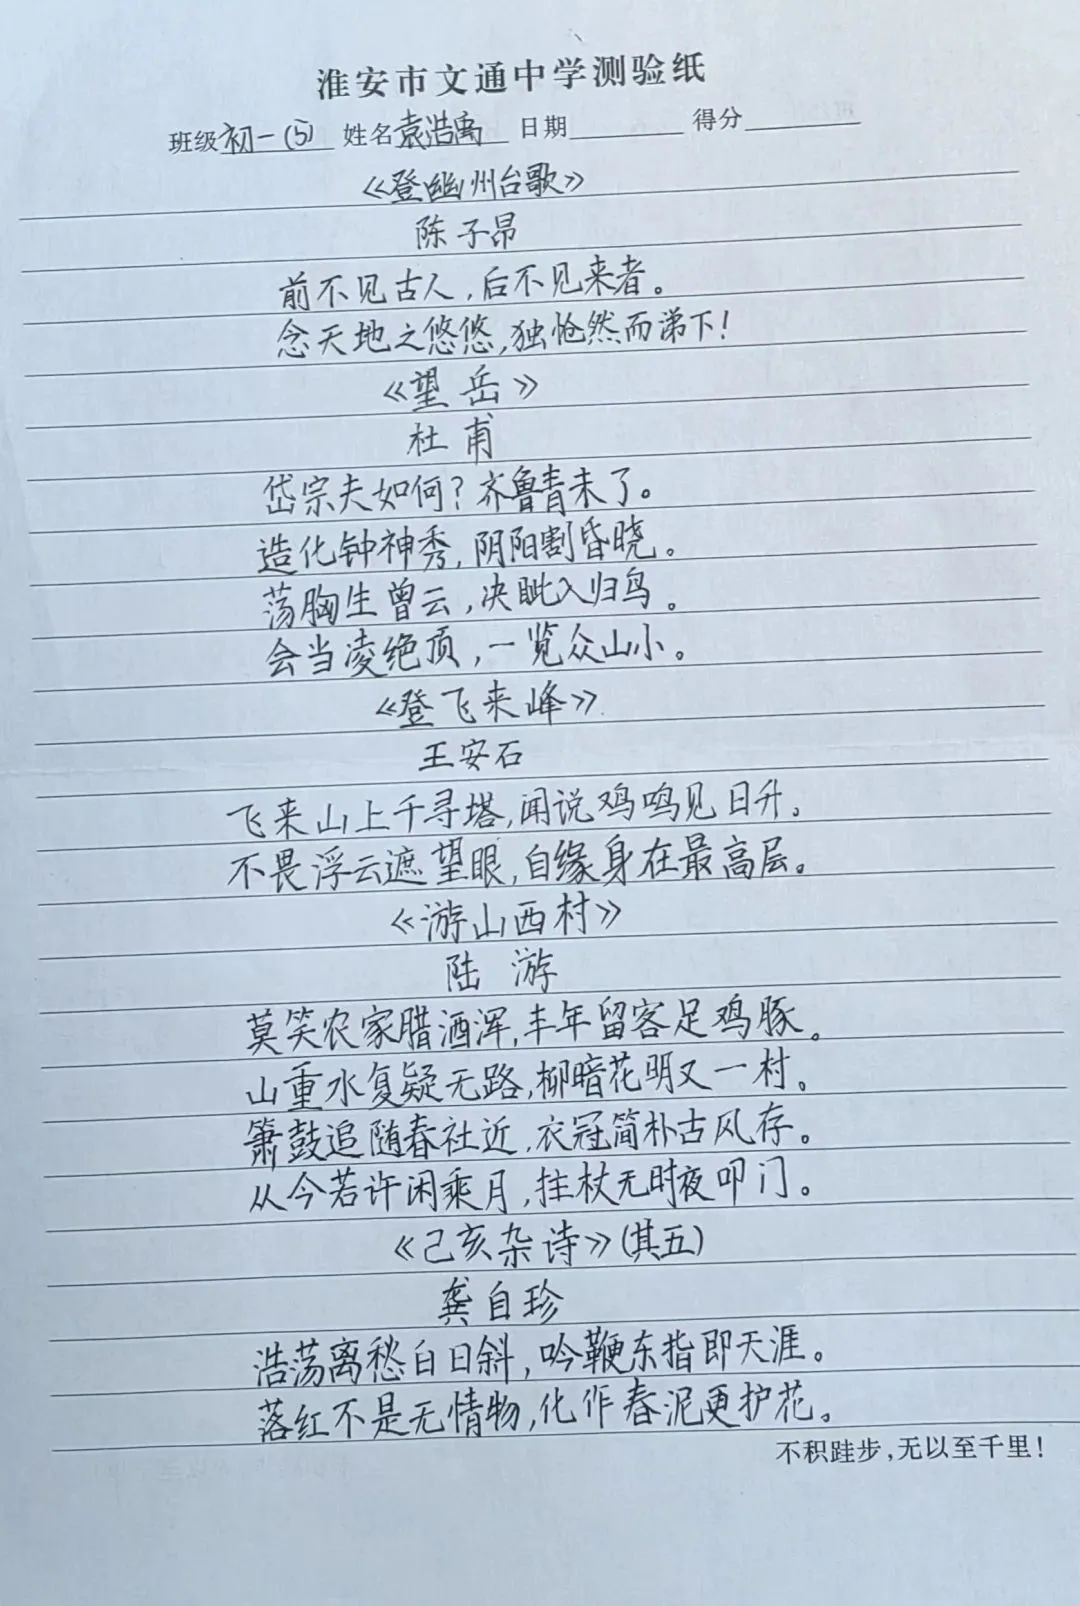 淮安市文通中学测验纸
班级初一(5) 姓名袁浩禹 日期 得分
《登幽州台歌》
陈子昂
前不见古人,后不见来者。
念天地之悠悠,独怆然而涕下!
《望岳》
杜甫
岱宗夫如何?齐鲁青未了。
造化钟神秀,阴阳割昏晓。
荡胸生曾云,决眦入归鸟。
会当凌绝顶,一览众山小。
《登飞来峰》
王安石
飞来山上千寻塔,闻说鸡鸣见日升。
不畏浮云遮望眼,自缘身在最高层。
《游山西村》
陆游
莫笑农家腊酒浑,丰年留客足鸡豚。
山重水复疑无路,柳暗花明又一村。
箫鼓追随春社近,衣冠简朴古风存。
从今若许闲乘月,拄杖无时夜叩门。
《己亥杂诗》(其五)
龚自珍
浩荡离愁白日斜,吟鞭东指即天涯。
落红不是无情物,化作春泥更护花。
不积跬步,无以至千里!